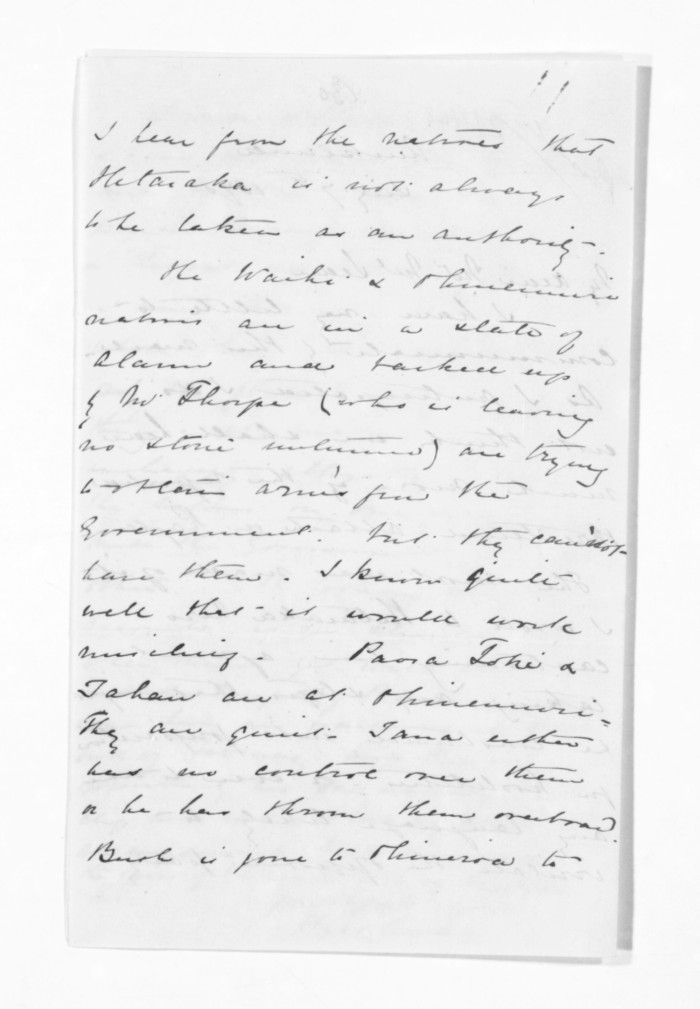 I hear from the natives that
Hetaraka is not always
to be taken as an authority.
The Waihi & Ohinemuri
natives are in a state of
alarm and backed up
by Mr Thorpe (who is leaving
no stone unturned) are trying
to obtain arms from the
Government. but they cannot
have them. I know quite
well that it would work
mischief. Paora Toki &
are at Ohinemuri.
They are quiet. Tana either
has no control over them
or he has thrown them overboard.
Bush is gone to Ohineroa to